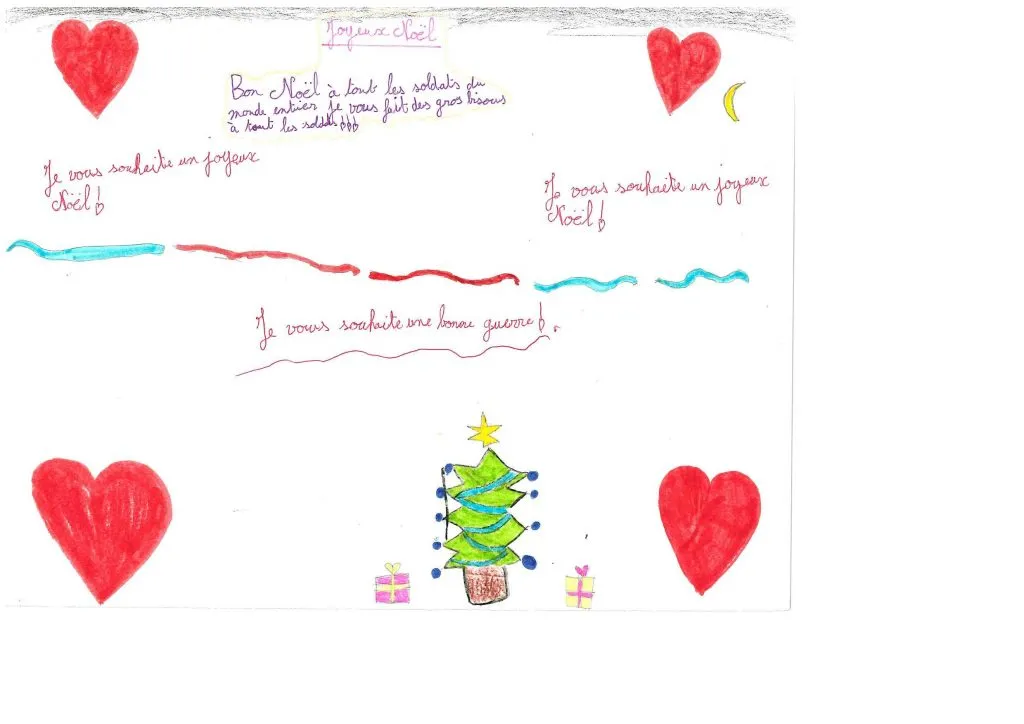 Joyeux Noël
Bon Noël à tout les soldats du
monde entier je vous fait des gros bisous
à tout les soldats!!!
Je vous souhaite un joyeux
Noël!
Je vous souhaite un joyeux
Noël!
Je vous souhaite une bonne guerre!.